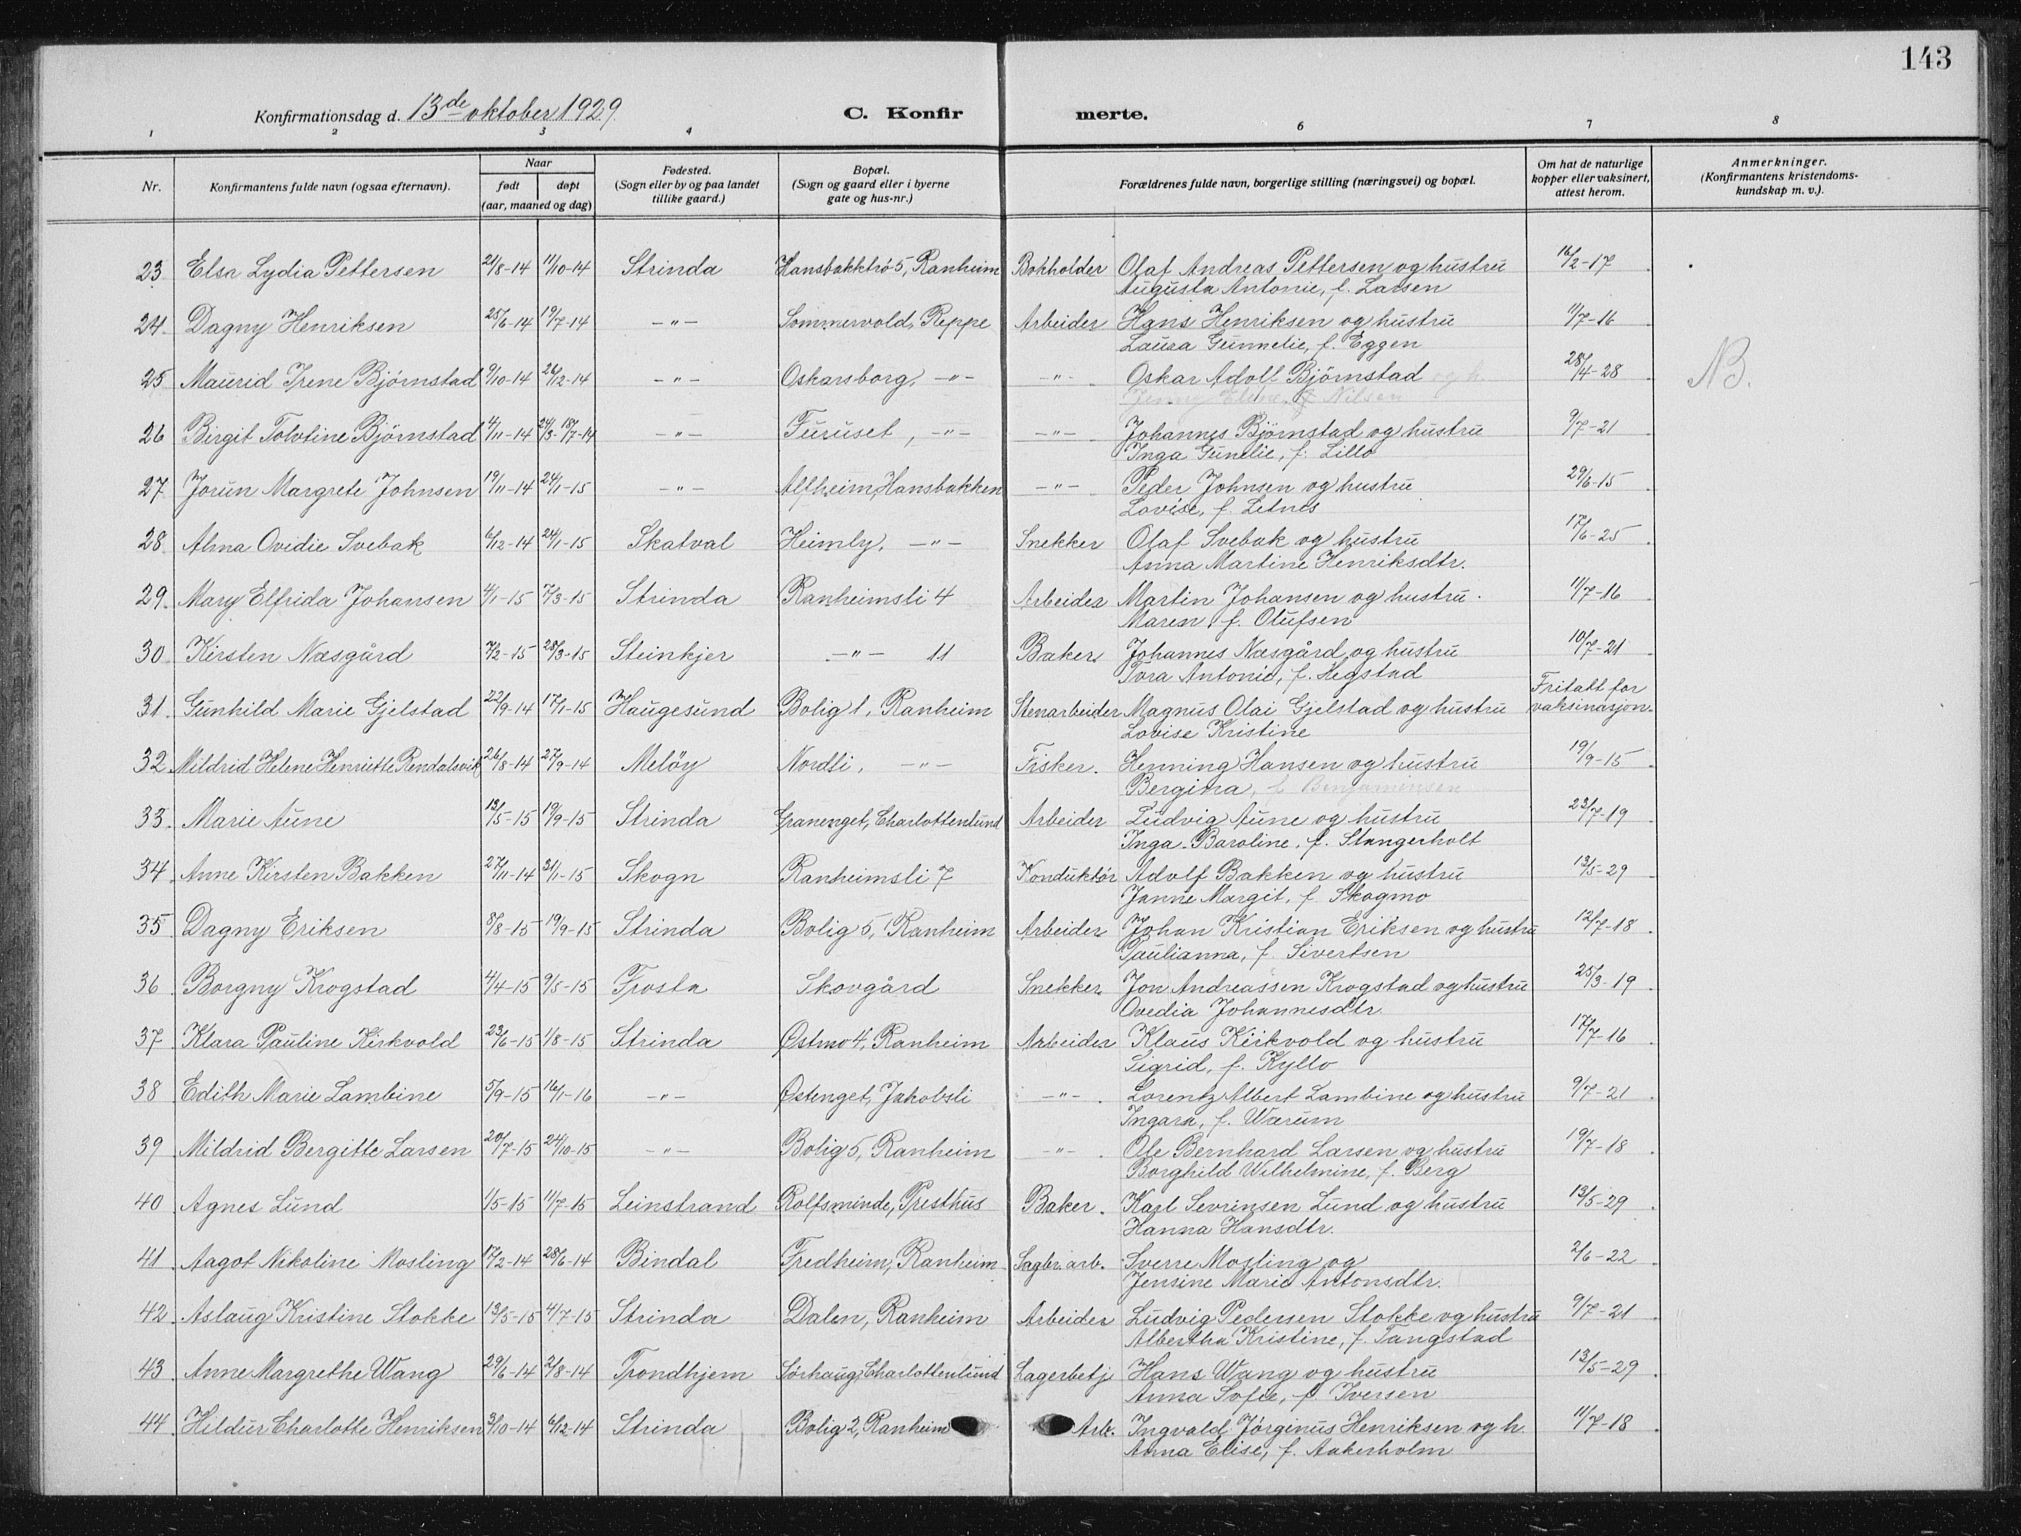 143
Konfirmationsdag d. 13de oktober 1929. C. Konfirmerte.
1 2 3 4 6 7 8
Nr. Konfirmantens fulde navn (ogsaa efternavn). Naar født døpt (aar, maaned og dag) Fødested. (Sogn eller by og paa landet tillike gaard.) Bopæl. (Sogn og gaard eller i byerne gate og hus-nr.) Forældrenes fulde navn, borgerlige stilling (næringsvei) og bopæl. Om hat de naturlige kopper eller vaksinert, attest herom. Anmerkninger. (Konfirmantens kristendoms-kundskap m. v.).
23. Elsa Lydia Pettersen 21/8-14 11/10-14 Strinda Hansbakktrø 5, Ranheim Bokholder Olaf Andreas Pettersen og hustru 16/2-17
Augusta Antonie, f. Larsen
24. Dagny Henriksen 25/6-14 19/7-14 -"- Sommervold, Reppe Arbeider Hans Henriksen og hustru 11/7-16
Laura Gunnelie, f. Eggen
25 Maurid Irene Bjørnstad 9/10-14 26/12-14 -"- Oskarsborg, -"- -"- Oskar Adolf Bjørnstad og h. 28/4-28 NB.
Jenny f. Nilsen
26 Birgit Tolvtine Bjørnstad 4/11-14 -"- Furuset, -"- -"- Johannes Bjørnstad og hustru 9/7-21
Inga Gunelie, f. Lillo
27. Jorun Margrete Johnsen 19/11-14 24/1-15 -"- Alfheim, Hansbakken -"- Peder Johnsen og hustru 29/6-15
Lovise, f. Letnes
28. Alma Ovidie Svebak 6/12-14 24/1-15 Skatval Heimly, -"- Snekker Olaf Svebak og hustru 17/6-25
Anna Martine Henriksdtr.
29. Mary Elfrida Johansen 4/1-15 7/3-15 Strinda Ranheimsli 4 Arbeider Martin Johansen og hustru 11/7-16
Maren, f. Olufsen
30 Kirsten Næsgård 7/2-15 28/3-15 Steinkjer -"- 11 Baker Johannes Næsgård og hustru 10/7-21
Tora Antonie, f. Hegstad
31. Gunhild Marie Gjelstad 22/9-14 17/1-15 Haugesund Bolig 1, Ranheim Stenarbeider Magnus Olai Gjelstad og hustru Fritatt for vaksinasjon.
Lovise Kristine
32. Mildrid Helene Henriette Rendalsvik 26/8-14 27/9-14 Meløy Nordli, -"- Fisker. Henning Hansen og hustru 19/9-15
Bergina, f. Benjaminsen
33. Marie Aune 13/5-15 19/9-15 Strinda Granenget, Charlottenlund Arbeider Ludvig Aune og hustru 23/7-19
Inga Baroline, f. Stangerholt
34. Anne Kirsten Bakken 27/11-14 31/1-15 Skogn Ranheimsli 7 Konduktør Adolf Bakken og hustru 13/5-29
Janne Margit, f. Skogmo
35 Dagny Eriksen 8/8-15 19/9-15 Strinda Bolig 5, Ranheim Arbeider Johan Kristian Eriksen og hustru 12/7-18
Paulianna, f. Sivertsen
36 Borgny Krogstad 4/4-15 9/5-15 Frosta Skovgård Snekker Jon Andreassen Krogstad og hustru 25/3-19
Ovedia Johannesdtr.
37. Klara Pauline Kirkvold 23/6-15 1/8-15 Strinda Østmo 4, Ranheim Arbeider Klaus Kirkvold og hustru 17/7-16
Sigrid, f. Kyllo
38 Edith Marie Lambine 5/9-15 16/1-16 -"- Østenget, Jakobsli -"- Lorentz Albert Lambine og hustru 9/7-21
Ingara, f. Wærum
39 Mildrid Bergitte Larsen 20/7-15 24/10-15 -"- Bolig 5, Ranheim -"- Ole Bernhard Larsen og hustru 19/7-18
Borghild Wilhelmine, f. Berg
40 Agnes Lund 1/5-15 11/7-15 Leinstrand Rolfsminde, Presthus Baker. Karl Sevrinsen Lund og hustru 13/5-29
Hanna Hansdtr.
41. Aagot Nikoline Mosling 17/2-14 28/6-14 Bindal Fredheim, Ranheim Sagbr. arb. Sverre Mosling og 2/6-22
Jensine Marie Antonsdtr.
42. Aslaug Kristine Stokke 13/5-15 4/7-15 Strinda Dalen, Ranheim Arbeider Ludvig Pedersen Stokke og hustru 9/7-21
Albertha Kristine, f. Tangstad
43 Anne Margrethe Wang 29/6-14 2/8-14 Trondhjem Sørhaug, Charlottenlund Lagerbetj. Hans Wang og hustru 13/5-29
Anna Sofie, f. Iversen
44 Hildur Charlotte Henriksen 3/10-14 6/12-14 Strinda Bolig 2, Ranheim Arb. Ingvald Jørginus Henriksen og h. 11/7-18
Anna Elise, f. Aakerholm